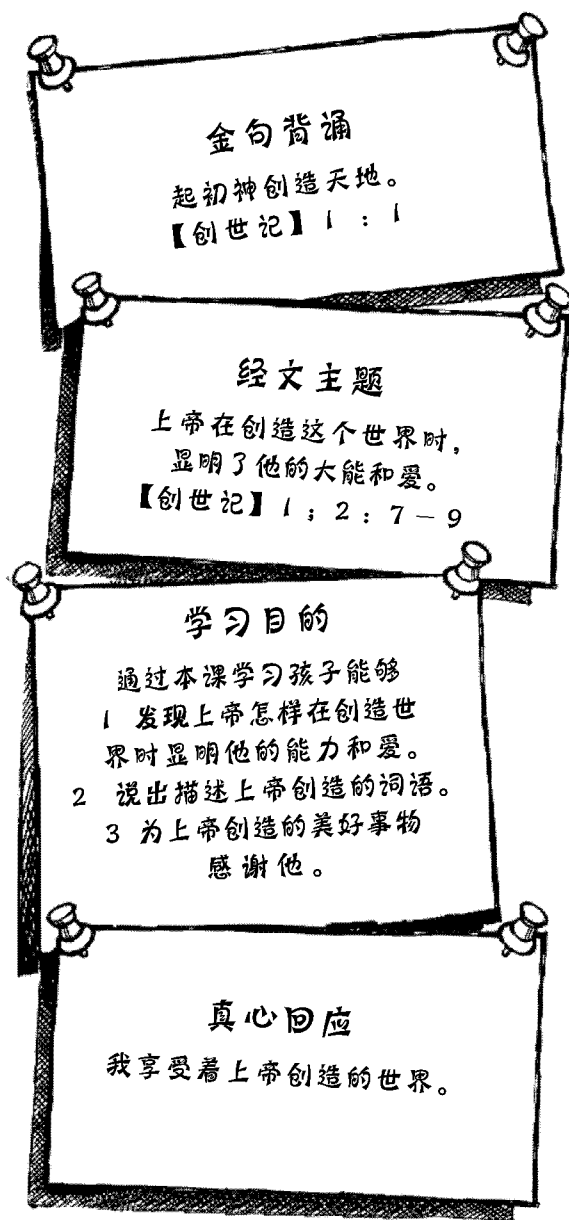 金句背诵
起初神创造天地。
【创世记】1:1
经文主题
上帝在创造这个世界时,
显明了他的大能和爱。
【创世记】1;2:7-9
学习目的
通过本课学习孩子能够
1 发现上帝怎样在创造世
界时显明他的能力和爱。
2 说出描述上帝创造的词语。
3 为上帝创造的美好事物
感谢他。
真心回应
我享受着上帝创造的世界。